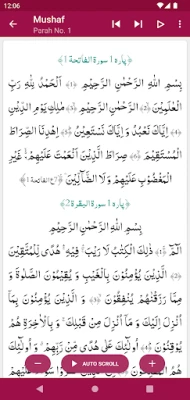 12:06
Mushaf
Parah No. 1
﴿پاره ١ سورة الفاتحة 1﴾
بِسْمِ اللهِ الرَّحْمٰنِ الرَّحِيْمِ ﴿﴾ اَلْحَمْدُ لِلّٰهِ رَبِّ
الْعٰلَمِيْنَ ﴿2﴾ الرَّحْمٰنِ الرَّحِيْمِ ﴿3﴾ مٰلِكِ يَوْمِ الدِّيْنِ
﴿4﴾ اِيَّاكَ نَعْبُدُ وَ اِيَّاكَ نَسْتَعِيْنُ ﴿5﴾ اِهْدِنَا الصِّرَاطَ
الْمُسْتَقِيْمَ ﴿6﴾ صِرَاطَ الَّذِيْنَ اَنْعَمْتَ عَلَيْهِمْ غَيْرِ
الْمَغْضُوْبِ عَلَيْهِمْ وَلَا الضَّآلِّيْنَ ﴿7﴾ الفاتحة 1
﴿پاره ١ سورة البقرة 2﴾
بِسْمِ اللهِ الرَّحْمٰنِ الرَّحِيْمِ
الٓمّٓ ﴿1﴾ ذٰلِكَ الْكِتٰبُ لَا رَيْبَ فِيْهِ هُدًى لِّلْمُتَّقِيْنَ
﴿2﴾ الَّذِيْنَ يُؤْمِنُوْنَ بِالْغَيْبِ وَ يُقِيْمُوْنَ الصَّلٰوةَ وَ
مِمَّا رَزَقْنٰهُمْ يُنْفِقُوْنَ ﴿3﴾ وَ الَّذِيْنَ يُؤْمِنُوْنَ بِمَآ
اُنْزِلَ اِلَيْكَ وَ مَآ اُنْزِلَ مِنْ قَبْلِكَ وَ بِالْاٰخِرَةِ هُمْ
يُوْقِنُوْنَ ﴿4﴾ اُولٰٓئِكَ عَلٰى هُدًى مِّنْ رَّبِّهِمْ وَ اُولٰٓئِكَ
AUTO SCROLL